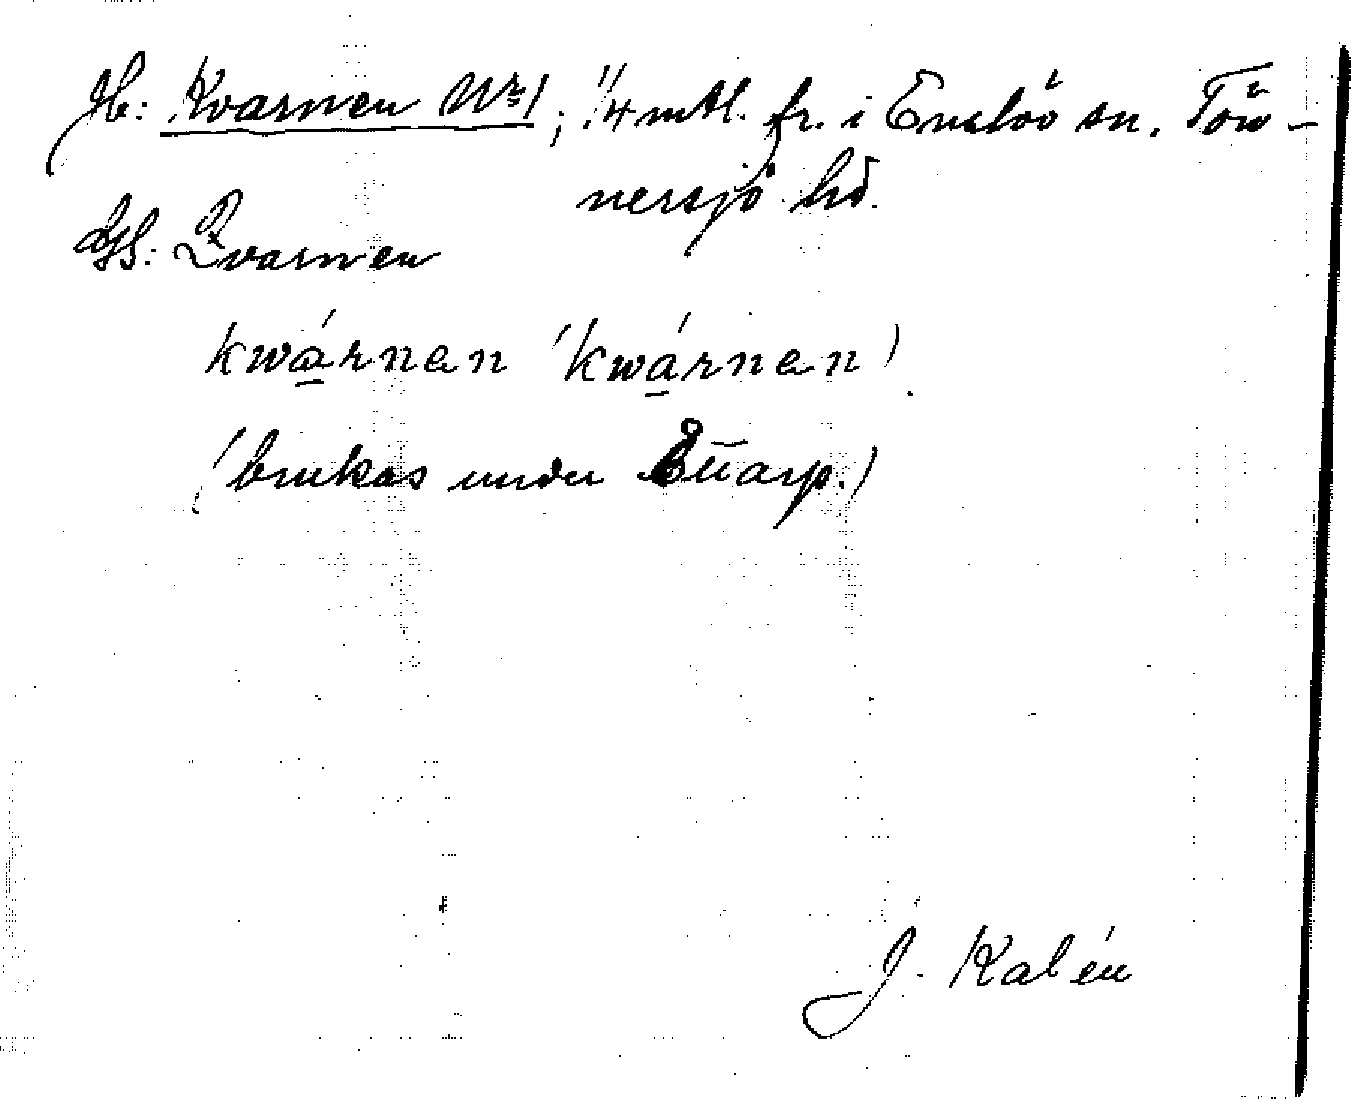 Jb: Kvarnen Nr 1; 1/4 mtl. fr. i Enslöv sn, Tön-
nersjö hd.
GS: Qvarnen
kwárnen (kwárnen).
(brukas under
J. Kalén